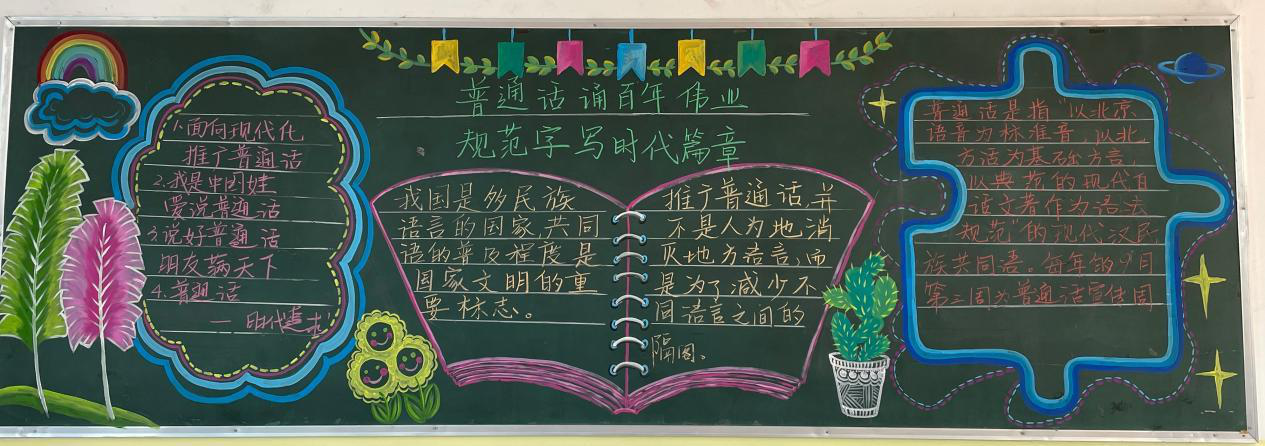 普通话诵百年伟业
规范字写时代篇章
1.面向现代化
推广普通话
2.我是中国娃
爱说普通话
3.说好普通话
朋友满天下
4.普通话
一时代
我国是多民族
语言的国家,共同
语的普及程度是
国家文明的重
要标志。
推广普通话,并
不是人为地消
灭地方语言,而
是为了减少不
同语言之间的
隔阂。
普通话是指"以北京
语音为标准音,以北
方话为基础方言,
以典范的现代白
话文著作为语法
规范"的现代汉民
族共同语。每年的9月
第三周为普通话宣传周